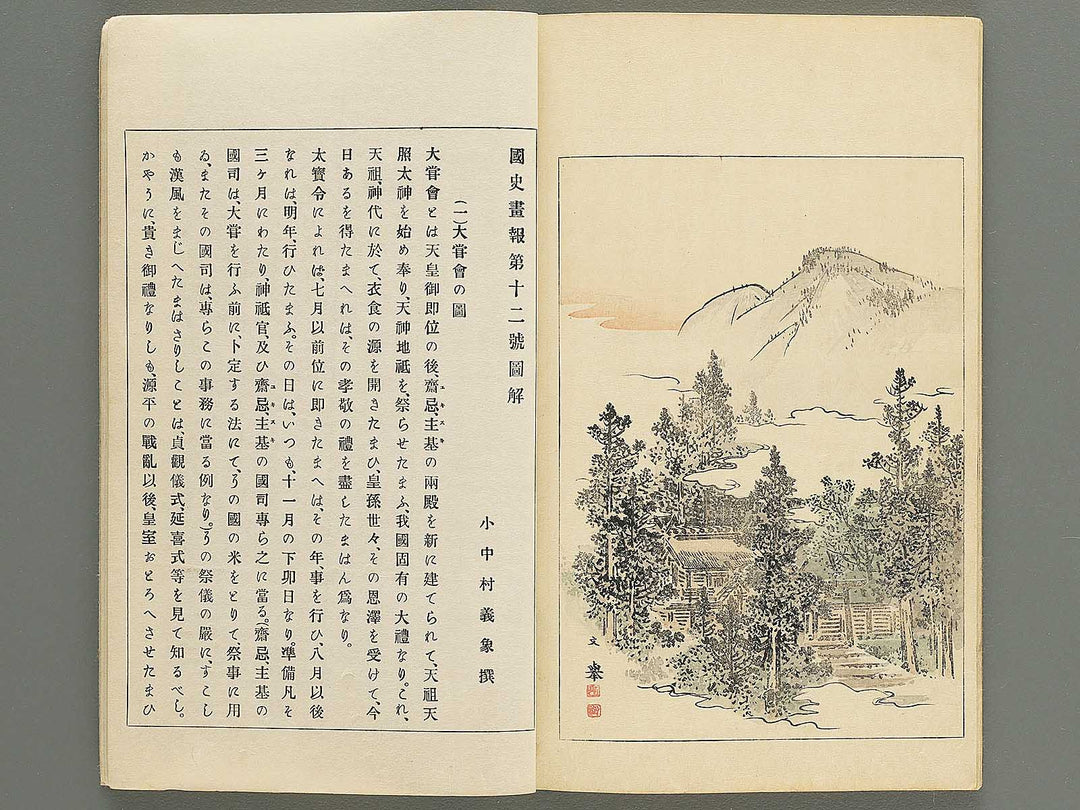 文
國史畫報第十二號圖解
小中村義象撰
(一)大甞會の圖
大甞會とは天皇御即位の後、齋忌、主基の兩殿を新に建てられて、天祖天
ユキスキ
照太神を始め奉り、天神地祇を、祭らせたまふ、我國固有の大禮なり。これ、
天祖、神代に於て、衣食の源を開きたまひ、皇孫世々、その恩澤を受けて、今
日あるを得たまへれは、その孝敬の禮を盡したまはん爲なり。
太寶令によれば、七月以前位に即きたまへは、その年、事を行ひ、八月以後
なれは、明年、行ひたまふ。その日は、いつも、十一月の下卯日なり。準備凡そ
三ヶ月にわたり、神祇官、及ひ齋忌、主基の國司專ら之に當る。(齋忌、主基の
ユキスキ
國司は、大甞を行ふ前に、卜定する法にて、その國の米をとりて祭事に用
ゐ、またその國司は、專らこの事務に當る例なり。)その祭儀の嚴に、すこし
も漢風をまじへたまはさりしことは貞觀儀式、延喜式等を見て知るべし。
かやうに、貴き御禮なりしも、源平の戰亂以後、皇室おとろへさせたまひ